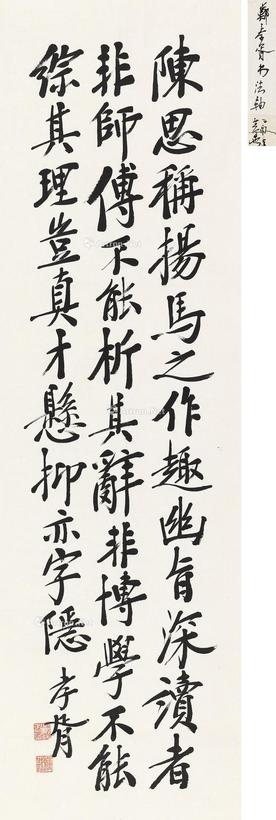 陳思稱揚馬之作趣幽旨深讀者
非師傅不能析其辭非博學不能
綜其理豈真才懸抑亦字隱 孝胥
鄭孝胥書法軸